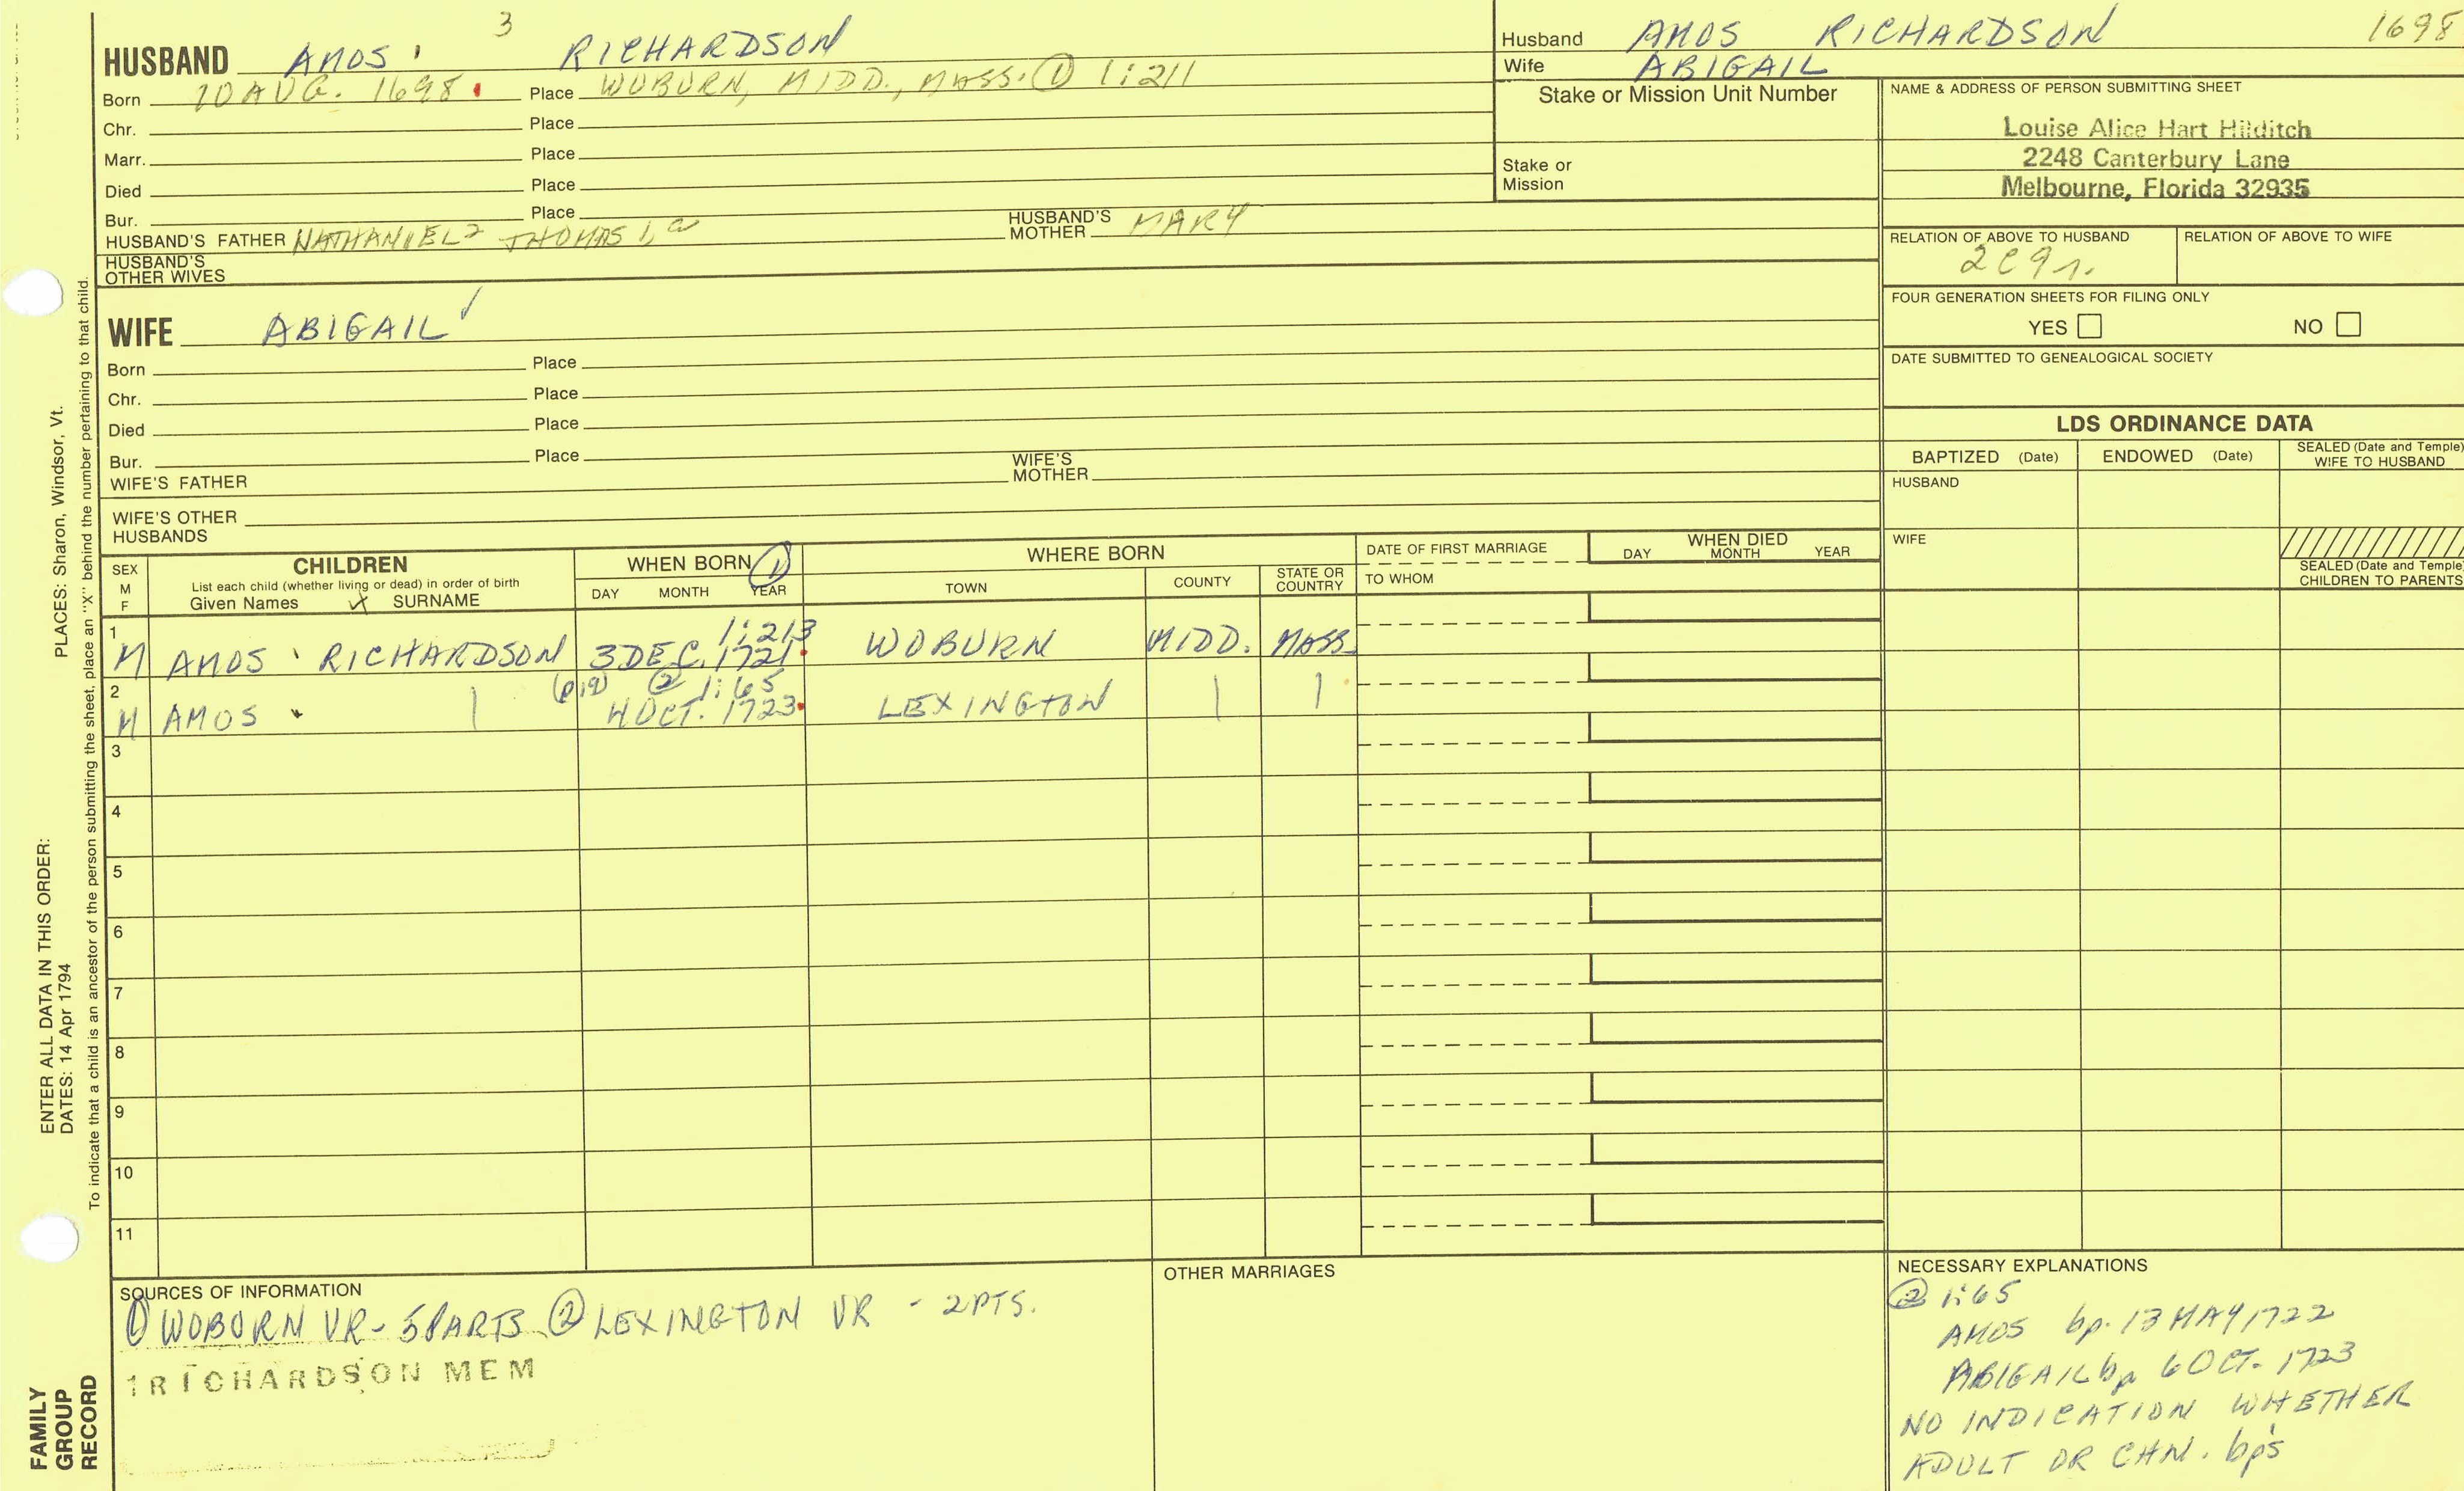 3
HUSBAND AMOS RICHARDSON
Born 10 AUG. 1698 Place WOBURN, MIDD., MASS. ① 1:211
Chr. Place
Marr. Place
Died Place
Bur. Place
HUSBAND'S FATHER NATHANIEL 2 THOMAS 1, HUSBAND'S MOTHER MARY
HUSBAND'S OTHER WIVES
WIFE ABIGAIL ✓
Born Place
Chr. Place
Died Place
Bur. Place
WIFE'S FATHER WIFE'S MOTHER
WIFE'S OTHER HUSBANDS
Husband AMOS RICHARDSON 1698
Wife ABIGAIL
Stake or Mission Unit Number
Stake or Mission
NAME & ADDRESS OF PERSON SUBMITTING SHEET
Louise Alice Hart Hilditch
2248 Canterbury Lane
Melbourne, Florida 32935
RELATION OF ABOVE TO HUSBAND RELATION OF ABOVE TO WIFE
FOUR GENERATION SHEETS FOR FILING ONLY
YES NO
DATE SUBMITTED TO GENEALOGICAL SOCIETY
LDS ORDINANCE DATA
BAPTIZED (Date) ENDOWED (Date) SEALED (Date and Temple) WIFE TO HUSBAND
HUSBAND
WIFE
SEALED (Date and Temple) CHILDREN TO PARENTS
SEX M F CHILDREN WHEN BORN ① WHERE BORN DATE OF FIRST MARRIAGE WHEN DIED
List each child (whether living or dead) in order of birth
Given Names SURNAME DAY MONTH YEAR TOWN COUNTY STATE OR COUNTRY TO WHOM DAY MONTH YEAR
1:213
1 M AMOS RICHARDSON 3 DEC. 1721 WOBURN MIDD. MASS.
(p19) ② 1:65
2 M AMOS | 4 OCT. 1723 LEXINGTON | |
3
4
5
6
7
8
9
10
11
SOURCES OF INFORMATION
① WOBURN VR - 5 PARTS ② LEXINGTON VR - 2 PTS.
1 RICHARDSON MEM
OTHER MARRIAGES
NECESSARY EXPLANATIONS
② 1:65
AMOS bp. 13 MAY 1722
ABIGAIL bp 6 OCT. 1723
NO INDICATION WHETHER
ADULT OR CHN. bp's
PLACES: Sharon, Windsor, Vt.
ENTER ALL DATA IN THIS ORDER:
DATES: 14 Apr 1794
To indicate that a child is an ancestor of the person submitting the sheet, place an "X" behind the number pertaining to that child.
FAMILY
GROUP
RECORD